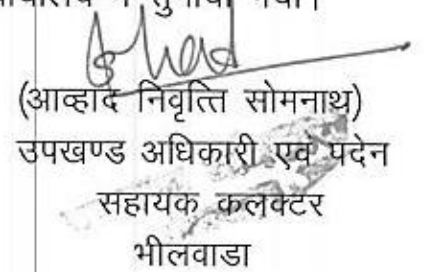 में सुनाया गया।
(आव्हाद निवृत्ति सोमनाथ)
उपखण्ड अधिकारी एवं पदेन
सहायक कलक्टर
भीलवाडा